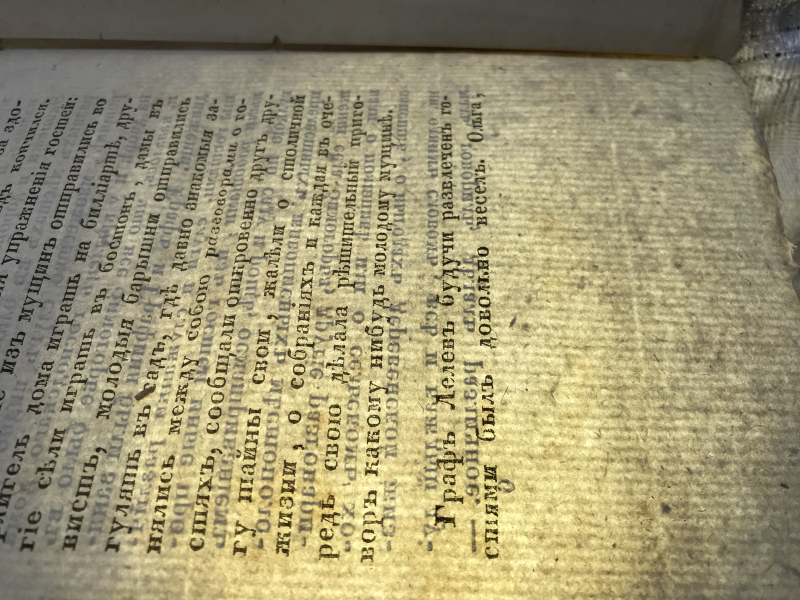 за здо-
дъ кончился.
упражненія гостей:
изъ мущинъ отправились во
флигель дома играть на билліартѣ, дру-
гіе сѣли играть въ бостонъ, дамы въ
вистъ, молодыя барышни отправились
гулять въ садъ, гдѣ давно знакомыя за-
нялись между собою разговорами о го-
стяхъ, сообщали откровенно другъ дру-
гу тайны свои, жалѣли о столичной
жизни, о собраніяхъ и каждая въ оче-
редь свою дѣлала рѣшительный приго-
воръ какому нибудь молодому мущинѣ.
Графъ Лелевъ будучи развлеченъ го-
стями былъ довольно веселъ. Ольга,